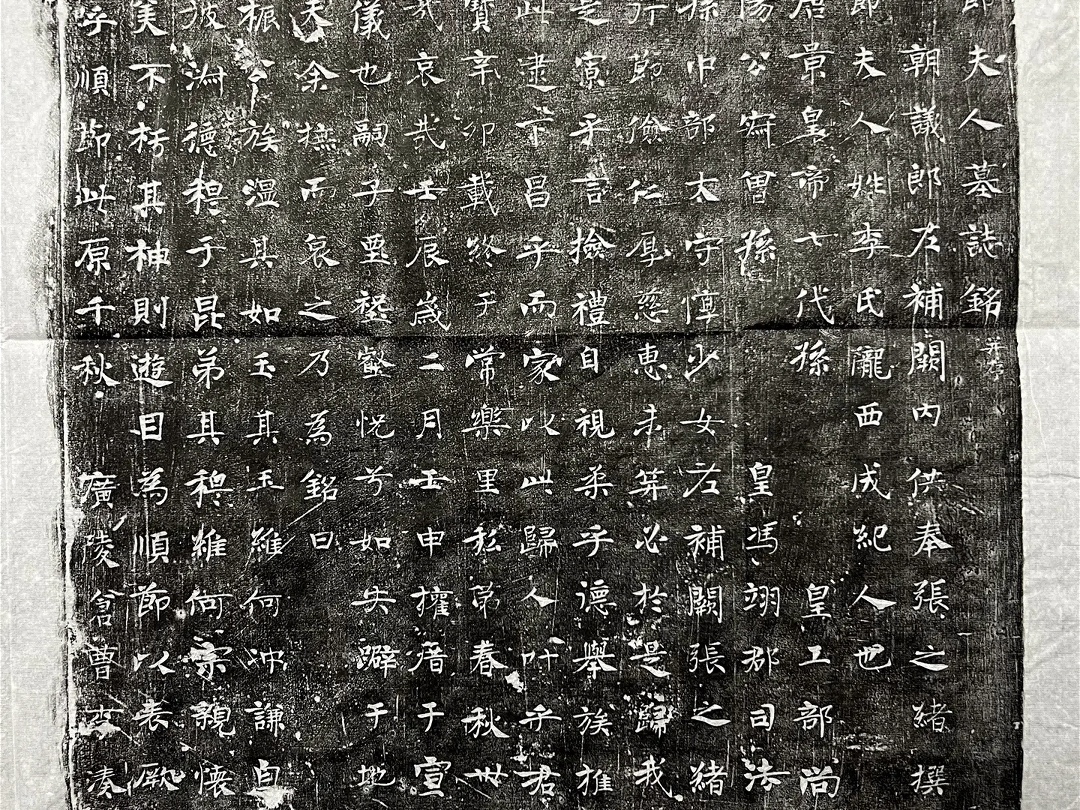 郎夫人墓誌銘并序
朝議郎左補闕內供奉張之緒撰
節夫人姓李氏隴西成紀人也
唐景皇帝七代孫 皇工部尚
陽公 曾孫 皇馮翊郡司法
孫中部太守惲少女左補闕張之緒
行節儉仁厚慈惠未笄必於是歸我
是寅手言撿禮自視柔乎德舉族推
此逮下昌乎而家以此歸人吁乎君
寶辛卯載終于常樂里私第春秋卅
哉哀哉壬辰歲二月壬申權厝于宣
儀也嗣子 恱兮如失躃于地
天余撫而哀之乃為銘曰
振族溫其如玉其玉維何沖謙自
彼淑德穆于昆弟其穆維何宗親懷
美不 其神則遊目為順節以表厥
呼順節此原千秋 廣陵倉曹李湊